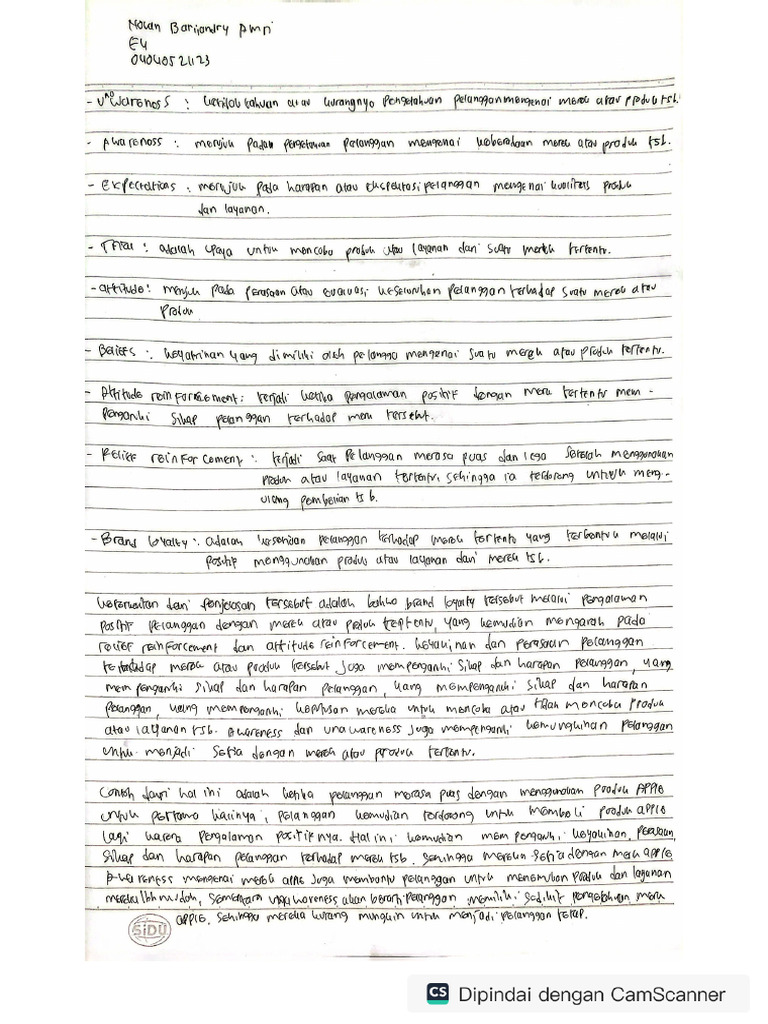 Novan Barijandry Amri
E4
04040521123
- Unawareness : ketidak tahuan atau kurangnya pengetahuan pelanggan mengenai merek atau produk tsb.
- Awareness : merujuk padan pengetahuan pelanggan mengenai keberadaan merek atau produk tsb.
- Expectations : merujuk pada harapan atau ekspektasi pelanggan mengenai kualitas produk
dan layanan.
- Trial : adalah upaya untuk mencoba produk atau layanan dari suatu merek tertentu.
- Attitude : merujuk pada perasaan atau evaluasi keseluruhan pelanggan terhadap suatu merek atau
Produk.
- Beliefs : keyakinan yang dimiliki oleh pelanggan mengenai suatu merek atau produk tertentu.
- Attitude reinforcement : terjadi ketika pengalaman positif dengan merek tertentu mem -
pengaruhi sikap pelanggan terhadap merek tersebut.
- Relief reinforcement : terjadi saat pelanggan merasa puas dan lega setelah menggunakan
produk atau layanan tertentu, sehingga ia terdorong untuk meng-
ulang pembelian tsb.
- Brand loyalty : adalah kesetiaan pelanggan terhadap merek tertentu yang terbentuk melalui
positif menggunakan produk atau layanan dari merek tsb.
keterkaitan dari penjelasan tersebut adalah bahwa brand loyalty tersebut melalui pengalaman
positif pelanggan dengan merek atau produk tertentu, yang kemudian mengarah pada
relief reinforcement dan attitude reinforcement. keyakinan dan perasaan pelanggan
terhadap merek atau produk tersebut juga mempengaruhi sikap dan harapan pelanggan, yang
mempengaruhi sikap dan harapan pelanggan, yang mempengaruhi sikap dan harapan
pelanggan, yang mempengaruhi keputusan mereka untuk mencoba atau tidak mencoba produk
atau layanan tsb. awareness dan unawareness juga mempengaruhi kemungkinan pelanggan
untuk menjadi setia dengan merek atau produk tertentu.
Contoh dari hal ini adalah ketika pelanggan merasa puas dengan menggunakan produk APPle
untuk pertama kalinya, pelanggan kemudian terdorong untuk membeli produk apple
lagi karena pengalaman positifnya. Hal ini kemudian mempengaruhi keyakinan, perasaan,
sikap dan harapan pelanggan terhadap merek tsb. sehingga mereka setia dengan merk apple
Awareness mengenai merek apple juga membantu pelanggan untuk menemukan produk dan layanan
mereka lbh mudah, sementara unawareness akan berarti pelanggan memiliki sedikit pengetahuan merk
APPle, sehingga mereka kurang mungkin untuk menjadi pelanggan tetap.
SiDU
CS Dipindai dengan CamScanner